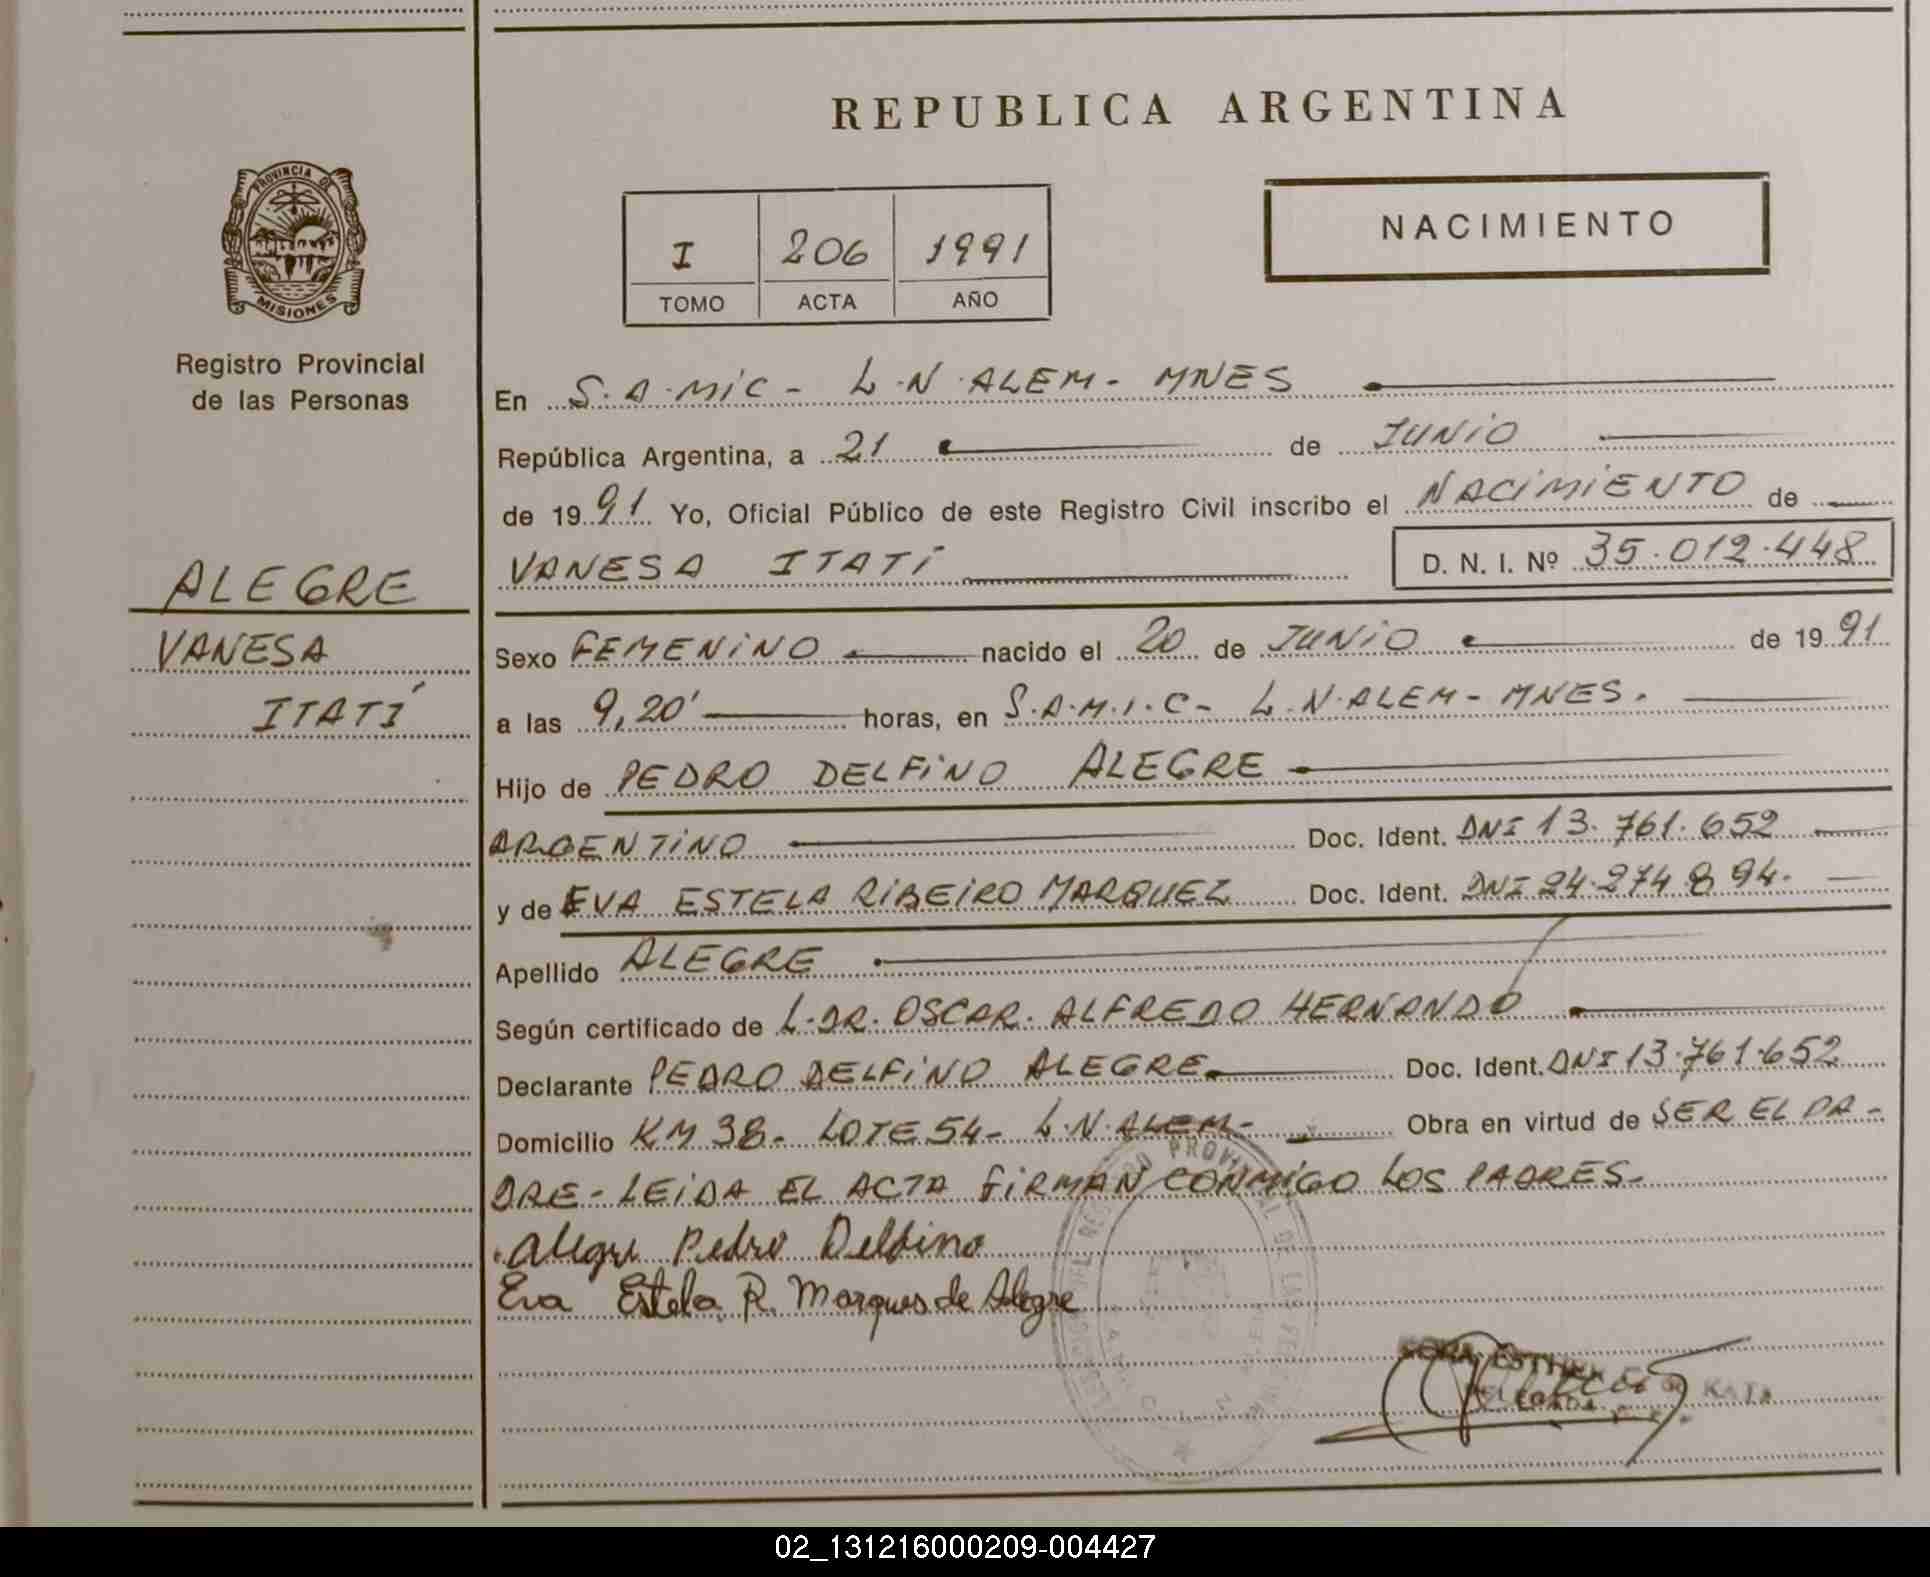 REPUBLICA ARGENTINA
PROVINCIA DE
MISIONES
Registro Provincial
de las Personas
I 206 1991
TOMO ACTA AÑO
NACIMIENTO
ALEGRE
VANESA
ITATÍ
En S.A.MIC - L.N.ALEM - MNES
República Argentina, a 21 de JUNIO
de 1991 Yo, Oficial Público de este Registro Civil inscribo el NACIMIENTO de
VANESA ITATÍ D. N. I. Nº 35.012.448
Sexo FEMENINO nacido el 20 de JUNIO de 1991
a las 9,20' horas, en S.A.M.I.C - L.N.ALEM - MNES.
Hijo de PEDRO DELFINO ALEGRE
ARGENTINO Doc. Ident. DNI 13.761.652
y de EVA ESTELA RIBEIRO MARQUEZ Doc. Ident. DNI 24.274.894.
Apellido ALEGRE
Según certificado de L.DR. OSCAR. ALFREDO HERNANDO
Declarante PEDRO DELFINO ALEGRE Doc. Ident. DNI 13.761.652
Domicilio KM 38 - LOTE 54 - L.N.ALEM - Obra en virtud de SER EL PA-
DRE - LEIDA EL ACTA FIRMAN CONMIGO LOS PADRES.
Alegre Pedro Delfino
Eva Estela R. Marques de Alegre
ESTHER
02_131216000209-004427